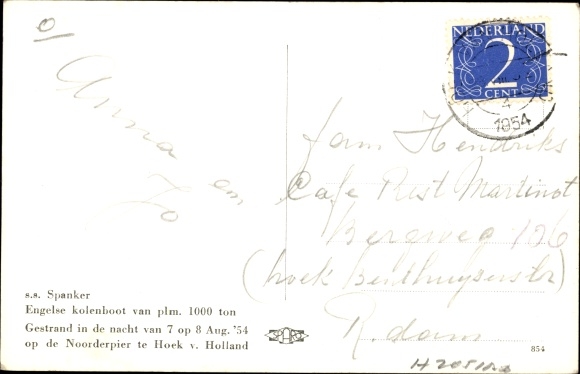 Anna
en
Jo
NEDERLAND
2
CENT
4
1954
fam Hendriks
Cafe Rest Martinot
Bergweg 126
(hoek Benthuyzerstr)
R.dam
s.s. Spanker
Engelse kolenboot van plm. 1000 ton
Gestrand in de nacht van 7 op 8 Aug. '54
op de Noorderpier te Hoek v. Holland
854